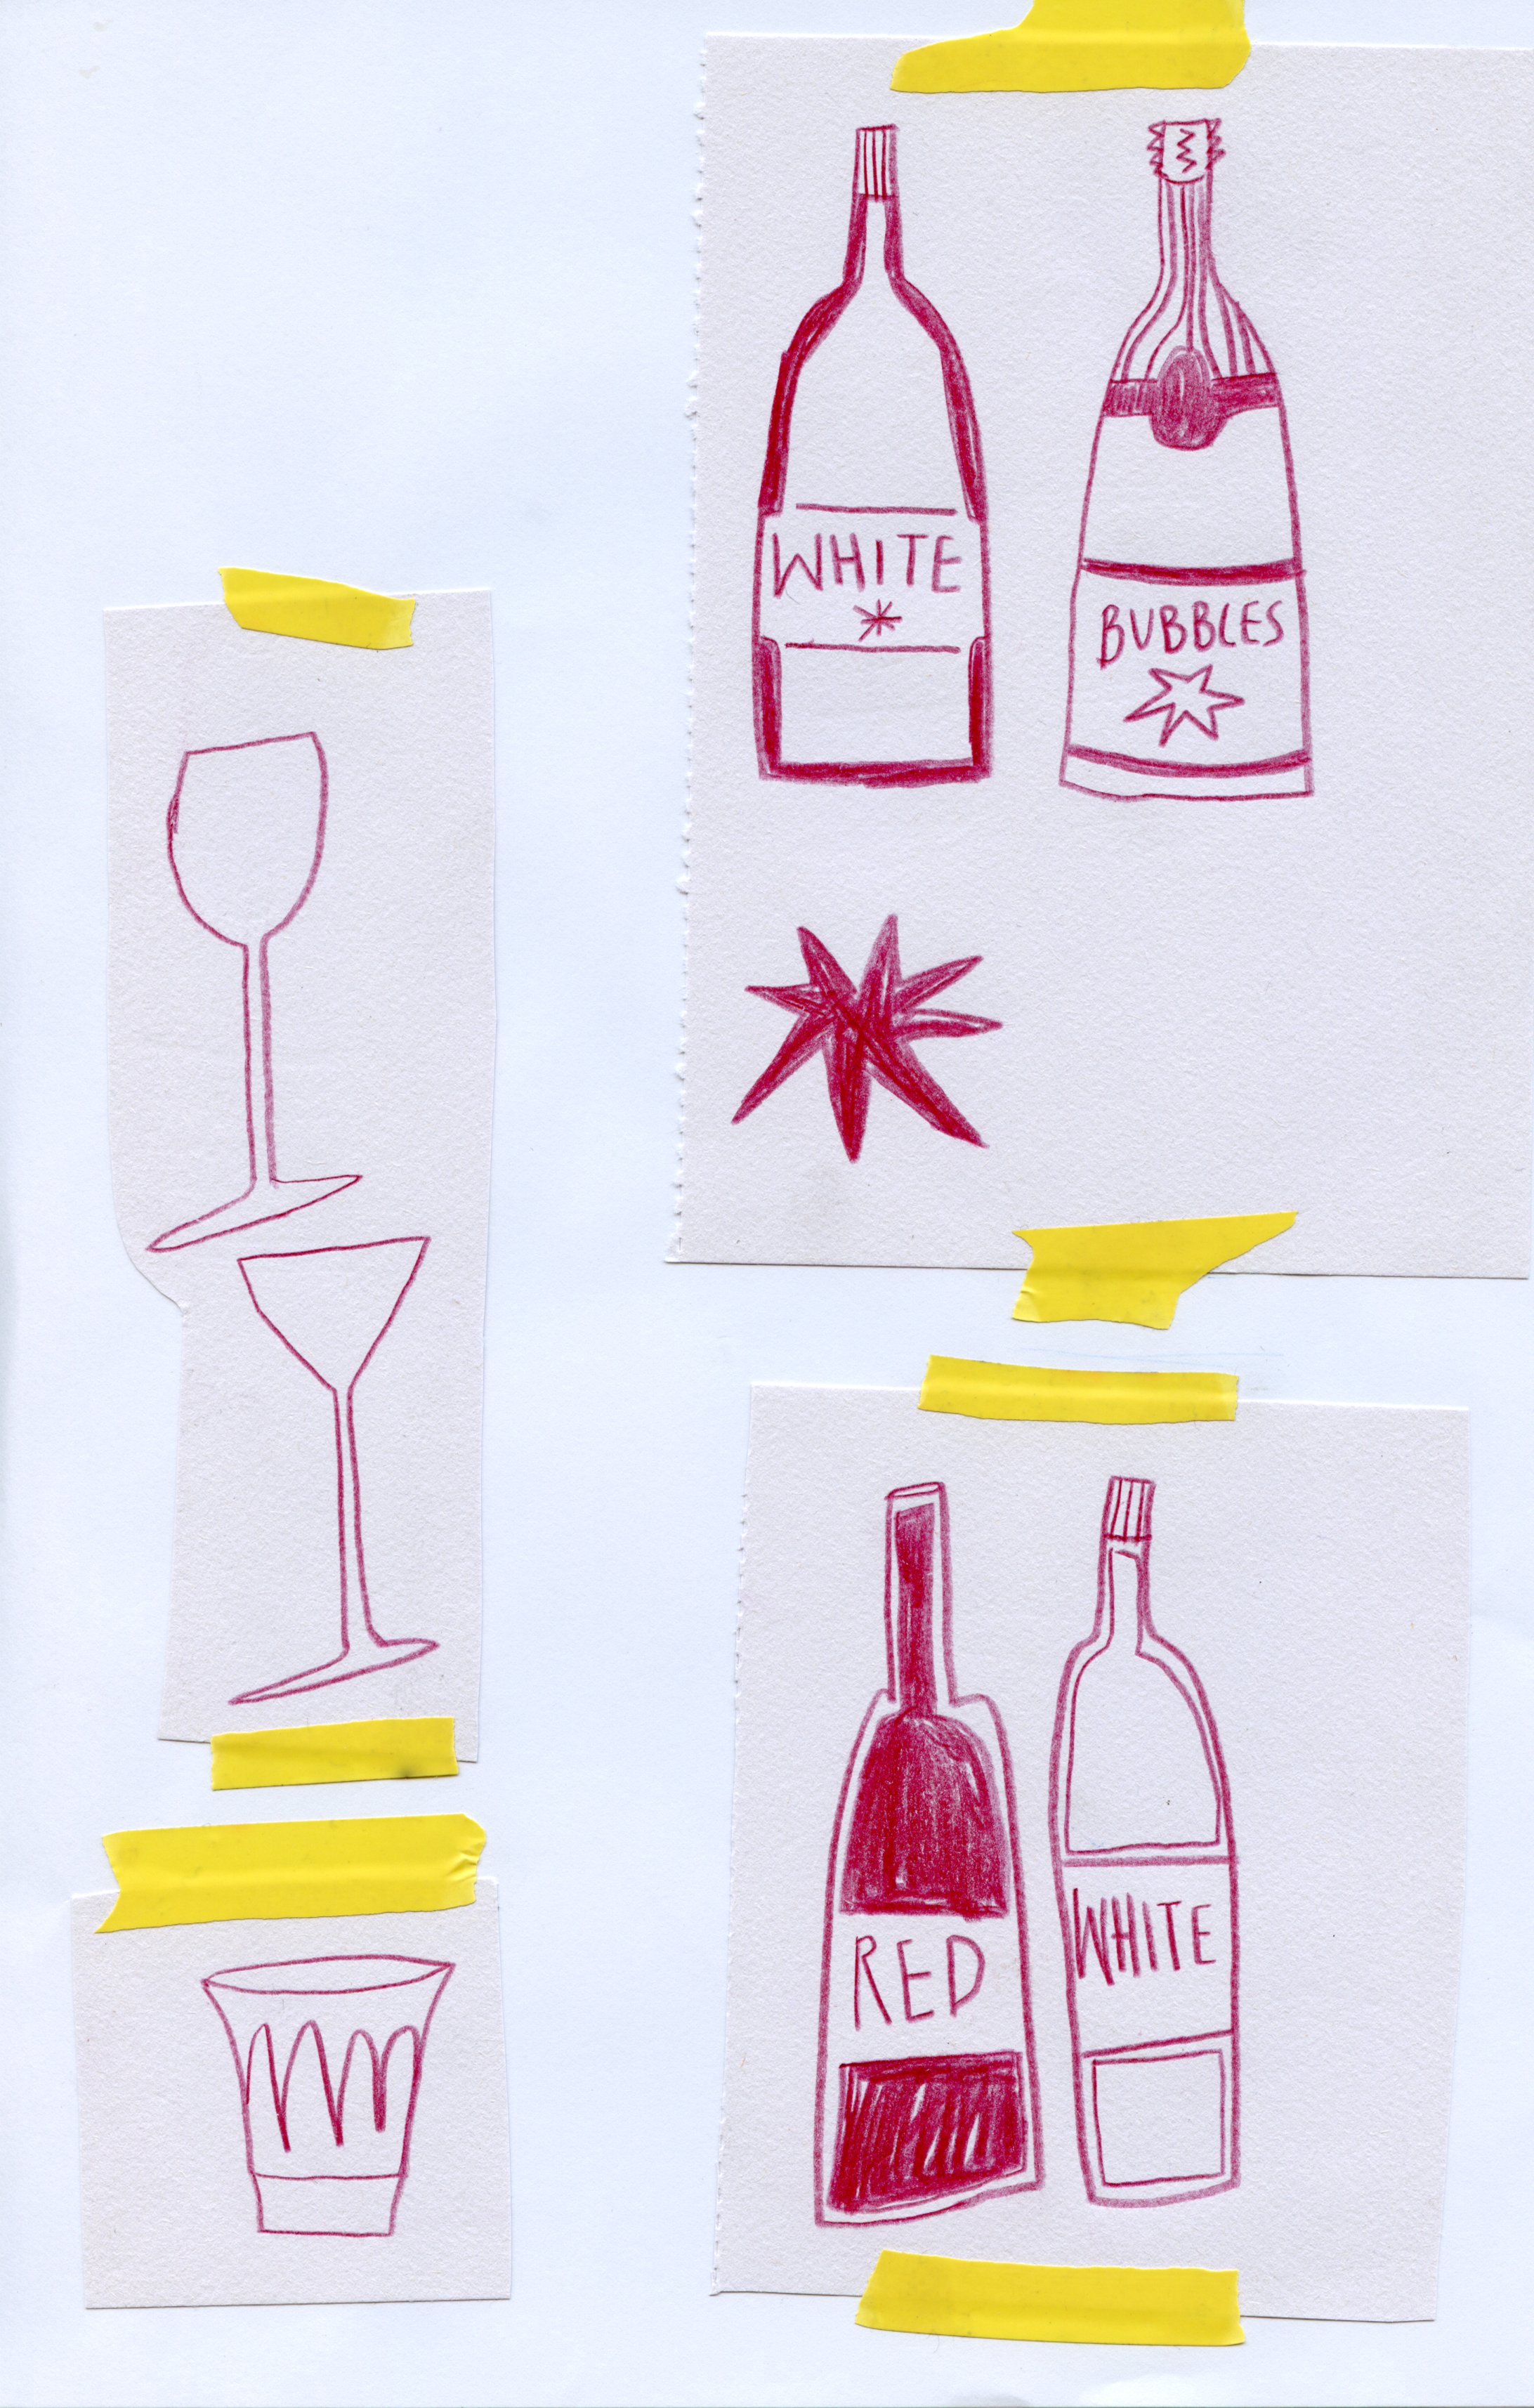 WHITE
BUBBLES
RED
WHITE